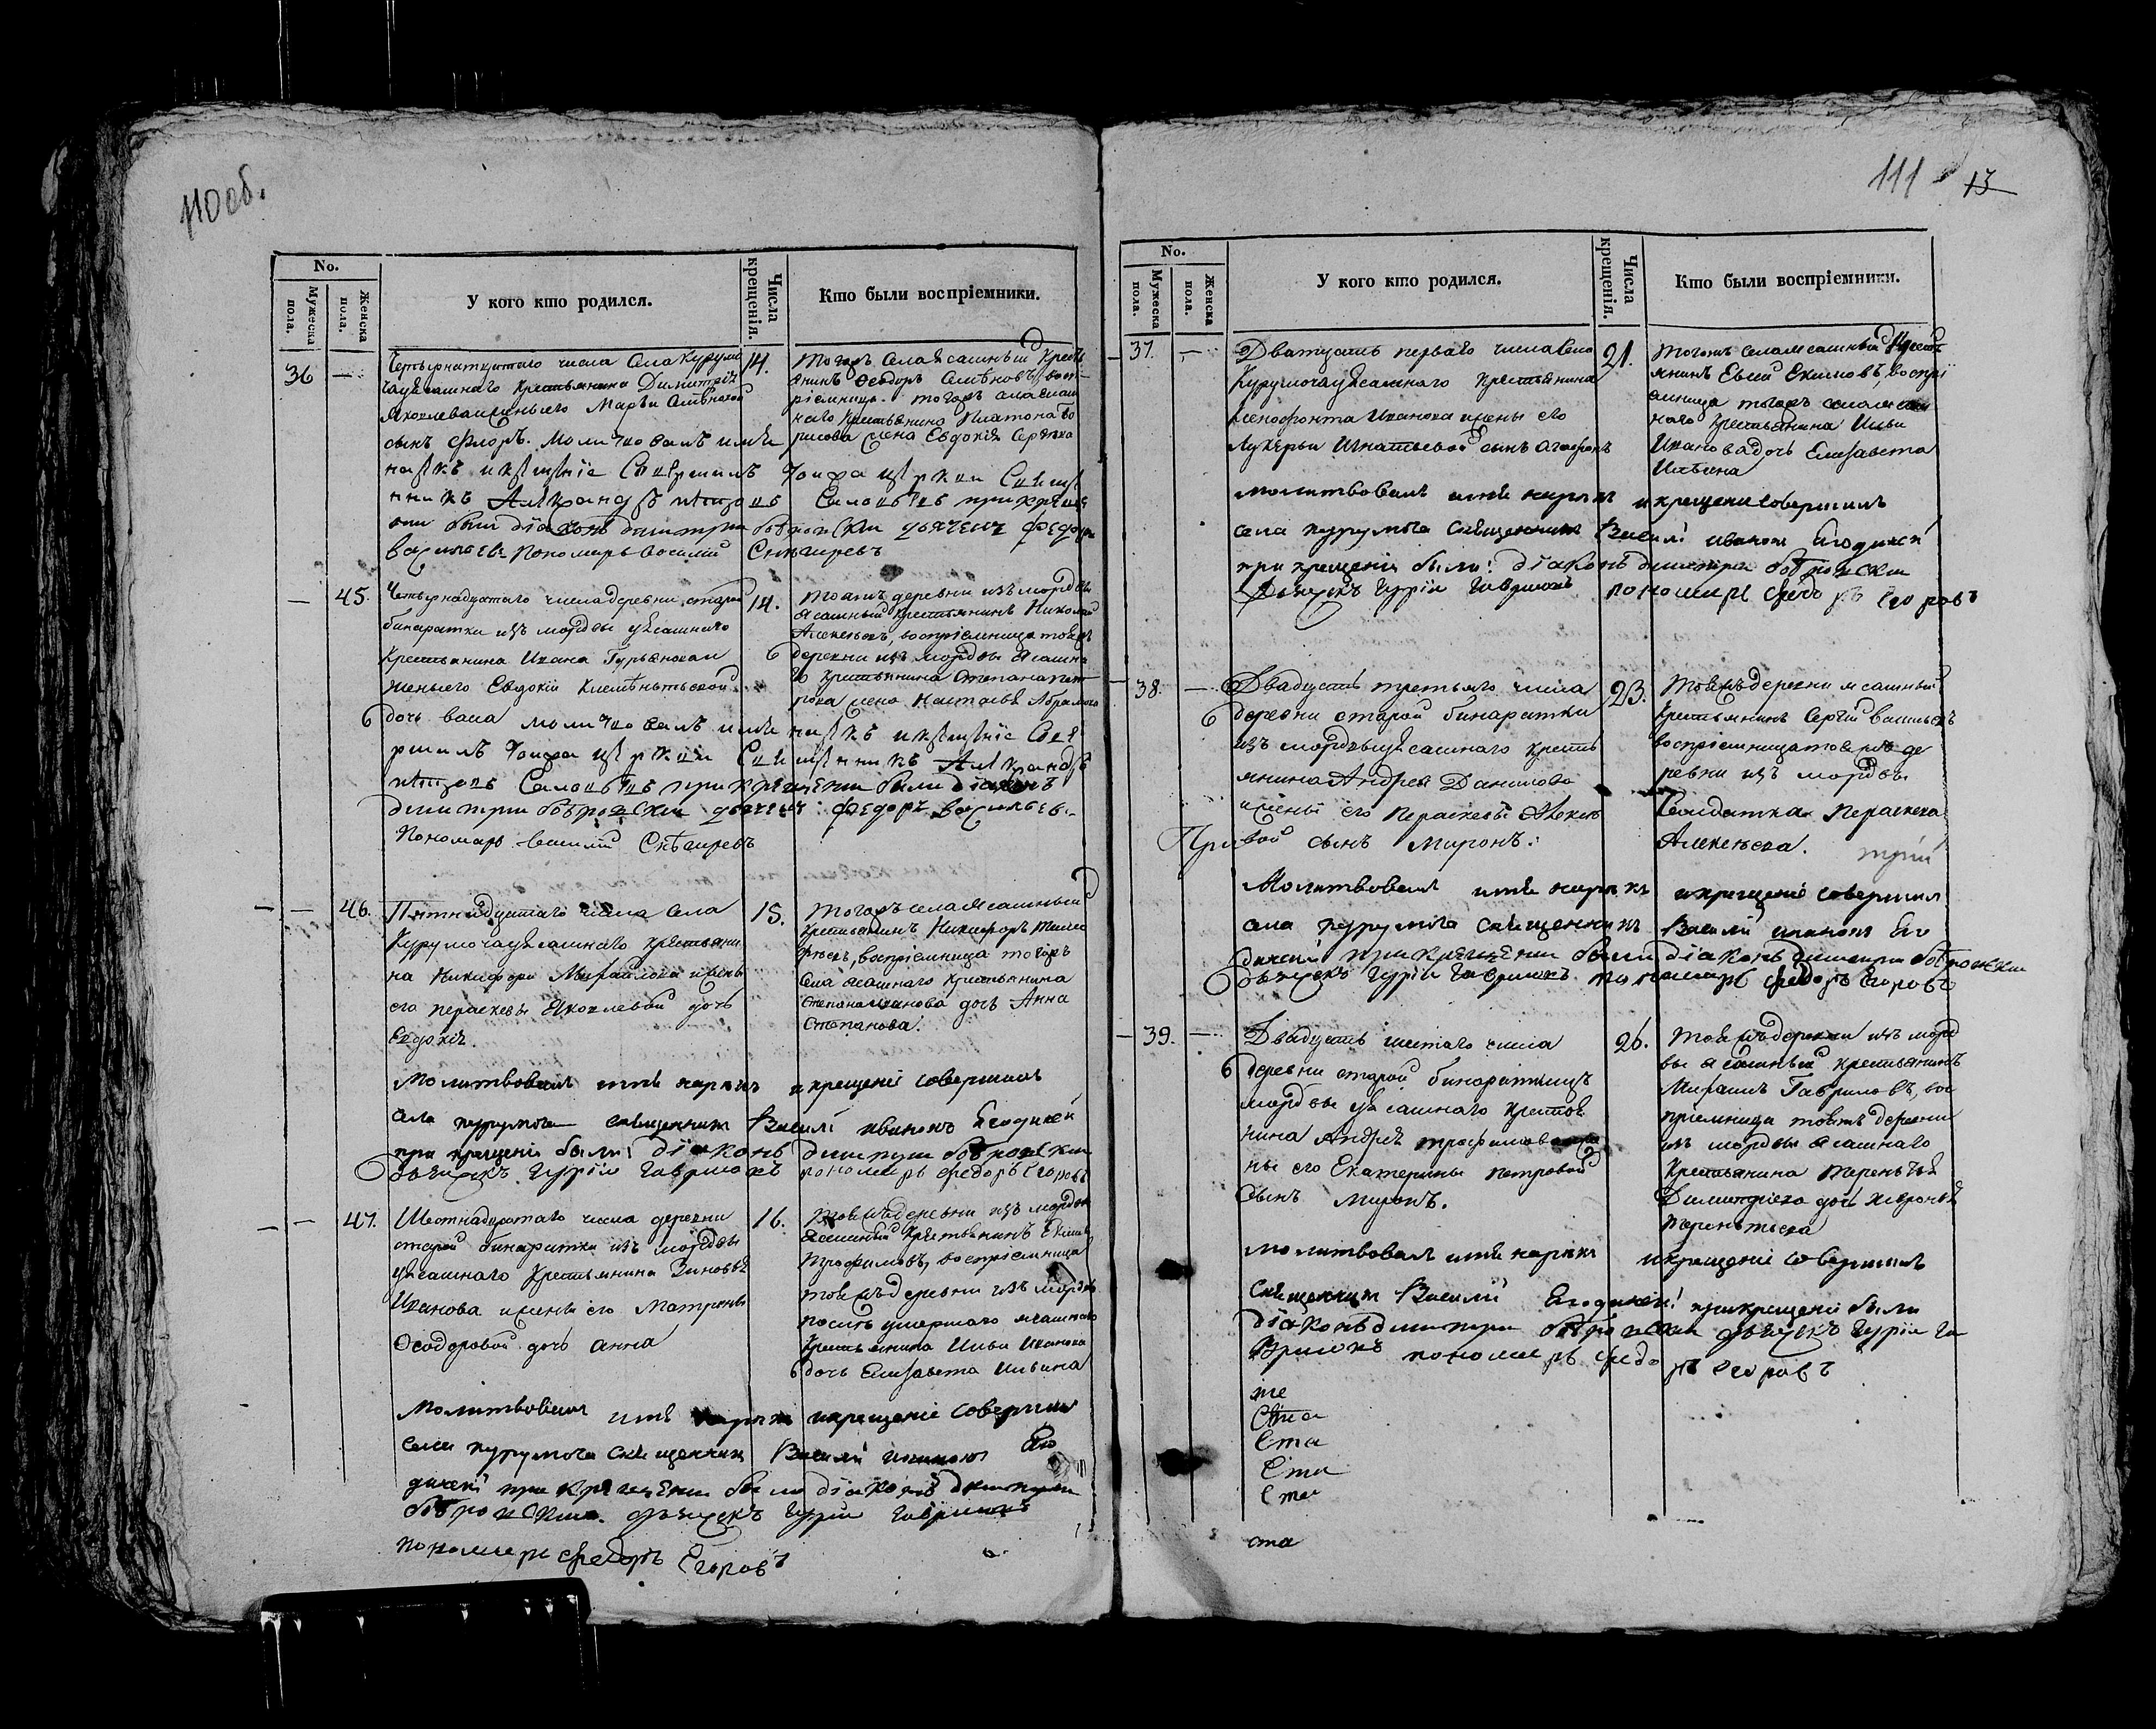 110 об.
No.
Мужеска пола.
Женска пола.
У кого кто родился.
Числа крещенія.
Кто были воспріемники.
36 — Четырнатцатаго числа села Куруми
чаясашнаго крестьянина Димитрія
Яковлева иженыего Марьи Семеновой
сынъ Флоръ. Молитвовалъ имя
нарекъ и крещеніе совершилъ
Александръ
были діаконъ Димитри дьячекъ Федоръ
Васильевъ пономарь Василий Снѣгиревъ
14. Тогожъ села ясашный крестья
янинъ Феодоръ Семеновъ, вос
ріемница тогожъ села ясаш
наго крестьянина Платона Бо
рисова жена Евдокія
— 45. Четырнадцатаго числа деревни старой
бинаратки изъ мордвы уясашнаго
крестьянина Ивана Гурьянова и
женыего Евдокіи Климентьевой
дочь васа молитвовалъ имя нарекъ и крещеніе сове
ршилъ Александръ
при крещеніи были діаконъ
димитри бобровски дьячекъ Федоръ Васильевъ
Пономарь василий Снѣгиревъ
14. Тояжъ деревни изъ мордвы
ясашный крестьянинъ Николай
Алексеевъ, воспріемница тояжъ
деревни изъ мордвы ясашна
го крестьянина Степана пет
рова жена Настасья Абрамова
— — 46. Пятнадцатаго числа села
Курумочауясашнаго крестьяни
на Никифора Михайлова ижены
его перасковьи Яковлевой дочь
Евдокія.
15. Тогожъ села Ясашный
крестьянинъ Никифоръ Тимо
феевъ, воспріемница тогожъ
села ясашнаго крестьянина
Степана Иванова дочь Анна
Степанова.
Молитвовалъ имя нарекъ и крещеніе совершилъ
села курумоча священникъ Василі ивановъ
при крещеніе были: діаконъ димитри бобровски
дьячекъ Гуріи Гавриловъ пономаръ Федоръ Егоровъ
— — 47. Шестнадцатаго числа деревни
старой бинаратки изъ мордвы
уясашнаго крестьянина Зиновья
Иванова ижены его Матрены
Феодоровой дочь анна
16. Тояжъ деревни изъ мордвы
ясашный крестьянинъ Екимъ
Трофимовъ, воспріемница
тояжъ деревни изъ мордвы
послѣ умершаго ясашнаго
крестьянина Ильи Иванова
дочь Елизавета Ильина
Молитвовалъ имя нарекъ и крещеніе совершилъ
села курумоча священникъ Василі ивановъ
при крещѣніи были діаконъ димитри
бобровски. дьячекъ Гуріи Гавриловъ
пономаръ Федоръ Егоровъ
111 13
No.
Мужеска пола.
Женска пола.
У кого кто родился.
Числа крещенія.
Кто были воспріемники.
37. — Дватцать перваго числа села
Курумочауясашнаго крестьянина
Ксенофонта Иванова ижены его
Лукерьи Игнатьевой сынъ Агафонъ
21. Тогожъ села ясашный крест
янинъ Евсей Екимовъ, воспрі
емница тогожъ села ясаш
наго крестьянина Ильи
Иванова дочь Елизавета
Ильина
молитвовалъ имя нарекъ и крещени совершилъ
села курумоча священникъ Василі ивановъ
при крещеніи были: діаконъ димитри бобровски
Дьячекъ Гуріи Гавриловъ пономаръ Федоръ Егоровъ
38. — Двадцать третьяго числа
деревни старой бинаратки
изъ мордвыуясашнаго кресть
янина Андрея Данилова
ижены его Перасковьи Алексе
вой сынъ Миронъ:
23. Тояжъ деревни ясашный
крестьянинъ Сергій Васильевъ
воспріемница тояжъ де
ревни изъ мордвы
Солдатка Перасковья
Алексеева.
Молитвовалъ имя нарекъ и крещеніе совершил
села курумоча священникъ Василі ивановъ
при крещѣніи были діаконъ димитри бобровски
дьячекъ Гуріи Гавриловъ пономаръ Федоръ Егоровъ
39. — Двадцать шестаго числа
деревни старой бинараткиизъ
мордвы уясашнаго крестья
нина Андрея трофимова иже
ны его Екатерины петровой
сынъ миронъ.
26. Тояжъ деревни изъ морд
вы ясашный крестьянинъ
Гавриловъ, вос
пріемница тояжъ деревни
изъ мордвы ясашнаго
крестьянина Терентья
Димитріева дочь
Терентьева
молитвовалъ имя нарекъ и крещеніе совершилъ
священникъ Василі при крещеніе были
діаконъ димитри бобровски дьячекъ Гуріи Га
вриловъ пономаръ Федоръ Егоровъ
те
Ста
Ста
Ста
Ста
ста